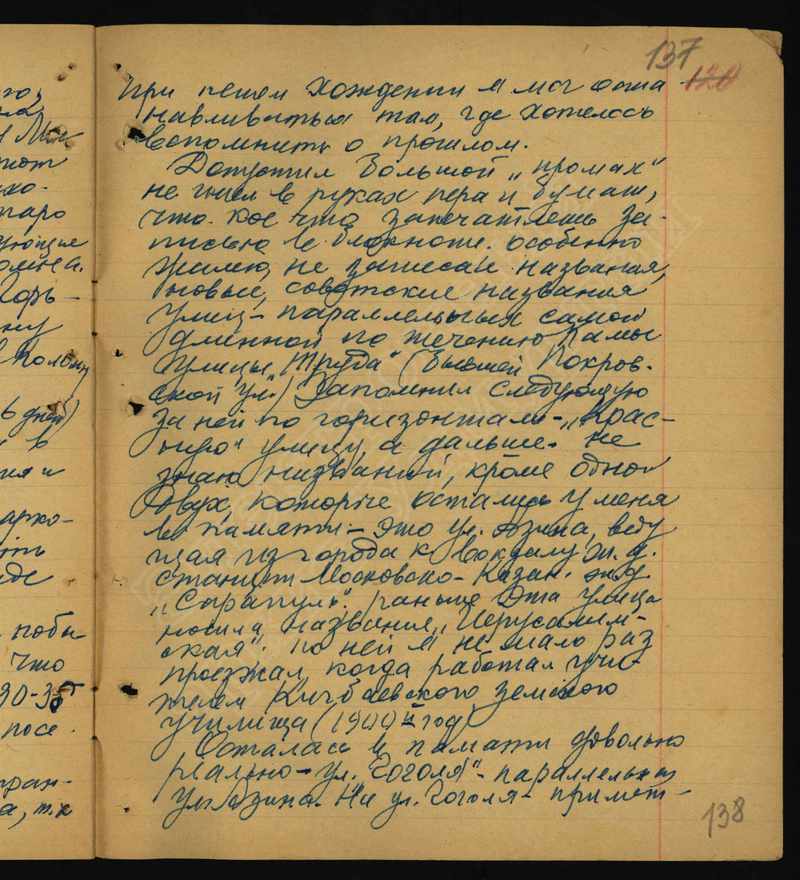 137
120
При пешем хождении я мог оста-
навливаться там, где хотелось
вспомнить о прошлом.
Допустил большой „промах"
не имел в руках пера и бумаги,
что кое что запечатлеть за-
писью в блокноте. Особенно
жалею, не записал названия,
новые, советские названия
улиц - параллельных самой
длинной по течению Камы
улицы „Труда" (бывшей Покров-
ской ул.) Запомнил следующую
за ней по горизонтали - „Крас-
ную" улицу, а дальше не
знаю названий, кроме одной
двух, которые остались у меня
в памяти - это ул. Азина, веду
щая из города к вокзалу ж.д.
станции Московско-Казан. ж.д.
„Сарапуль". раньше эта улица
носила название „Иерусалим-
ская". По ней я не мало раз
проезжал, когда работал учи-
телем Кигбаевского земского
училища (1900й год)
Осталась в памяти довольно
реально - ул. Гоголя" - параллельная
ул. Азина. На ул. Гоголя - примет-
138
го,
я Мы
ует
хо-
таро
ующие
Горь-
ну
Полому
6 дней)
и в
ния и
арко-
где
побы
Что
30-35
посе.
гран-
а, т.к